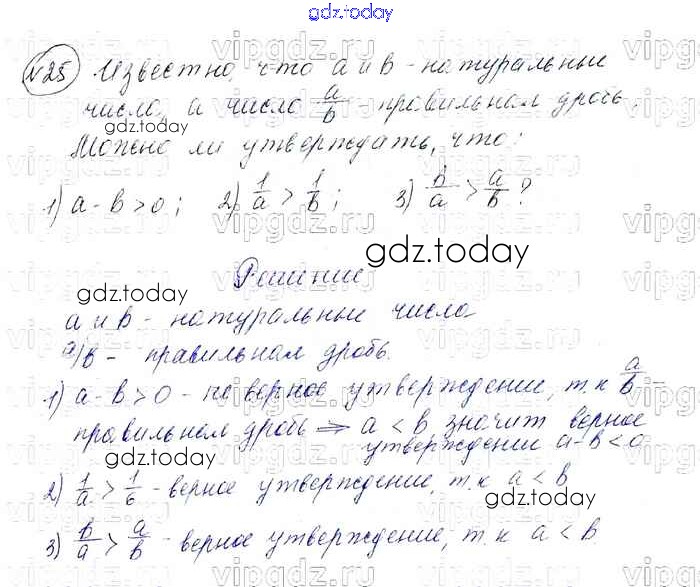 gdz.today
№25 Известно, что a и b - натуральные
число, а число a/b - правильная дробь.
gdz.today
Можно ли утверждать, что:
1) a - b > 0; 2) 1/a > 1/b; 3) b/a > a/b?
gdz.today
Решение
gdz.today
a и b - натуральные число
a/b - правильная дробь.
1) a - b > 0 - не верное утверждение, т.к a/b -
правильная дробь => a < b значит верное
утверждение a - b < 0.
gdz.today
2) 1/a > 1/b - верное утверждение, т.к a < b
gdz.today
3) b/a > a/b - верное утверждение, т.к a < b.
vipgdz.ru